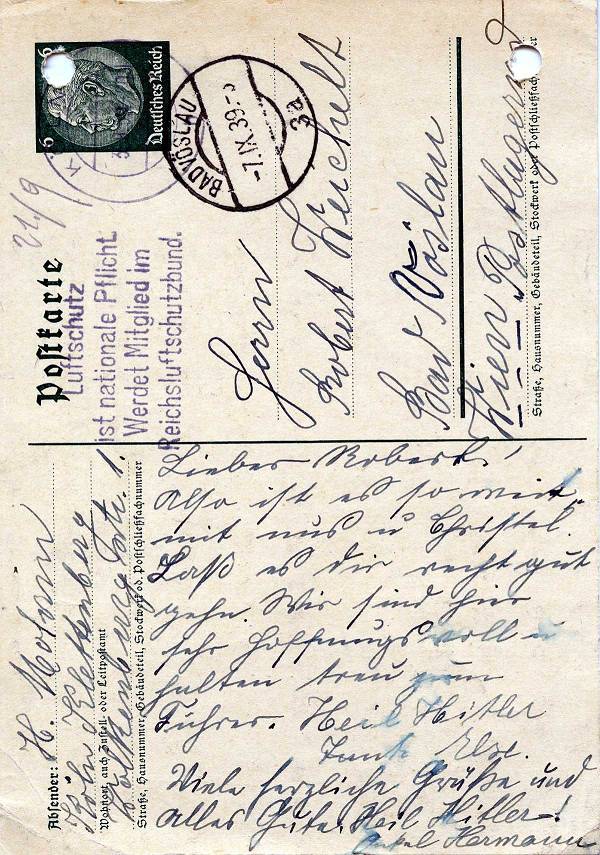 6 6
Deutsches Reich
BAD VÖSLAU
-7.IX.39.-3
3a
21/9
Postkarte
Luftschutz
ist nationale Pflicht.
Werdet Mitglied im
Reichsluftschutzbund.
Herrn
Robert Weichelt
Bad Vöslau
Wien „Postlagernd
Straße, Hausnummer, Gebäudeteil, Stockwerk oder Postschließfachnummer
Absender: H.
Köln Klettenberg
Wohnort, auch Zustell- oder Leitpostamt
Str. 1.
Straße, Hausnummer, Gebäudeteil, Stockwerk od. Postschließfachnummer
Lieber Robert!
Also ist es so weit
mit uns u Christel.
Laß es dir recht gut
gehn. Wir sind hier
sehr hoffnungsvoll u
halten treu zum
Führer. Heil Hitler
Tante Else.
Viele herzliche Grüße und
alles Gute. Heil Hitler!
Onkel Hermann